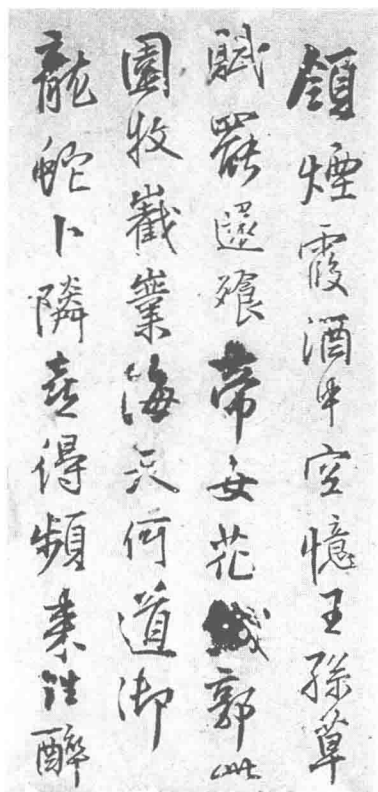 領煙霞酒中空憶王孫草
賦罷還飱帝女花城郭此
園收巀嶪海天何道御
龍蛇卜隣喜得頻來往醉